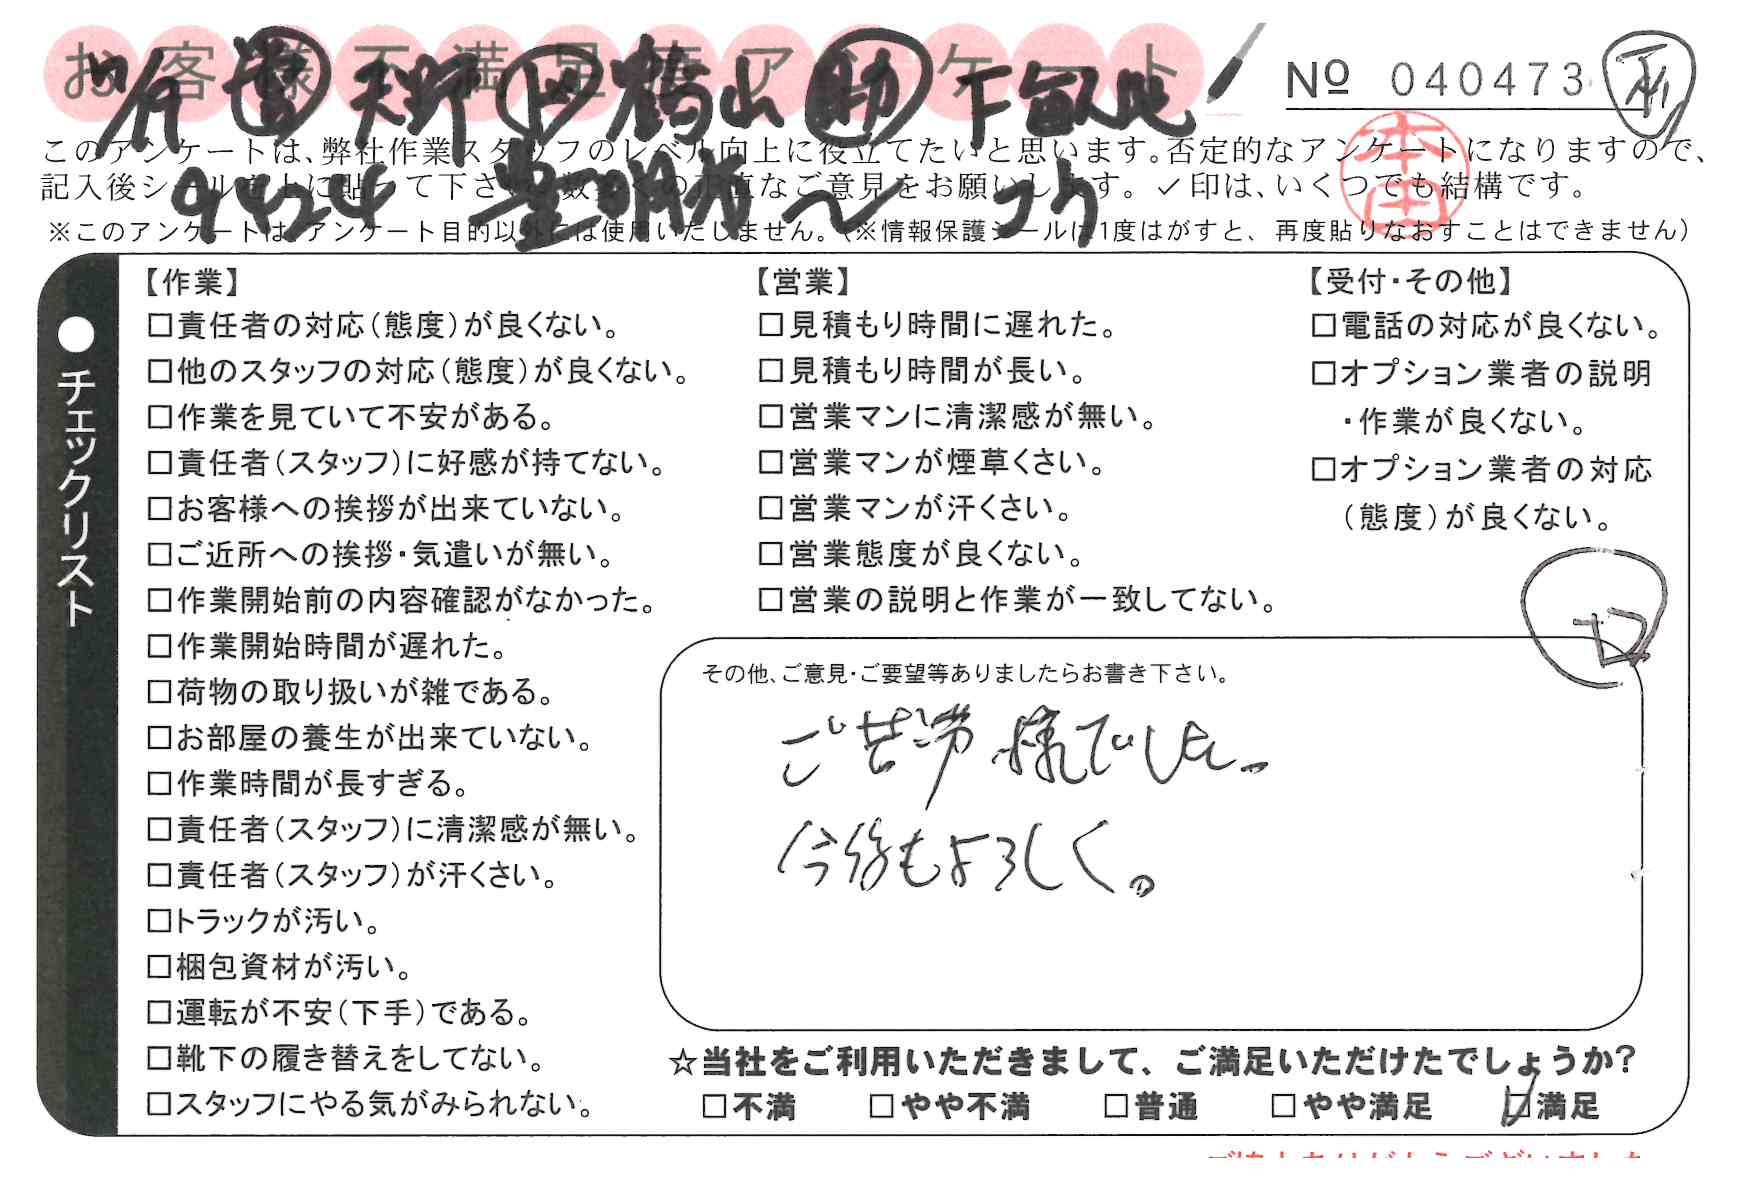 お客様不満足度アンケート
No 040473
このアンケートは、弊社作業スタッフのレベル向上に役立てたいと思います。否定的なアンケートになりますので、
記入後シールを上に貼って下さい。数多くの正直なご意見をお願いします。✓印は、いくつでも結構です。
※このアンケートは、アンケート目的以外には使用いたしません。(※情報保護シールは1度はがすと、再度貼りなおすことはできません)
本田
9424 豊明市〜
●チェックリスト
【作業】
□責任者の対応(態度)が良くない。
□他のスタッフの対応(態度)が良くない。
□作業を見ていて不安がある。
□責任者(スタッフ)に好感が持てない。
□お客様への挨拶が出来ていない。
□ご近所への挨拶・気遣いが無い。
□作業開始前の内容確認がなかった。
□作業開始時間が遅れた。
□荷物の取り扱いが雑である。
□お部屋の養生が出来ていない。
□作業時間が長すぎる。
□責任者(スタッフ)に清潔感が無い。
□責任者(スタッフ)が汗くさい。
□トラックが汚い。
□梱包資材が汚い。
□運転が不安(下手)である。
□靴下の履き替えをしてない。
□スタッフにやる気がみられない。
【営業】
□見積もり時間に遅れた。
□見積もり時間が長い。
□営業マンに清潔感が無い。
□営業マンが煙草くさい。
□営業マンが汗くさい。
□営業態度が良くない。
□営業の説明と作業が一致してない。
【受付・その他】
□電話の対応が良くない。
□オプション業者の説明
・作業が良くない。
□オプション業者の対応
(態度)が良くない。
その他、ご意見・ご要望等ありましたらお書き下さい。
ご苦労様でした。
今後もよろしく。
☆当社をご利用いただきまして、ご満足いただけたでしょうか?
□不満 □やや不満 □普通 □やや満足 ☑満足